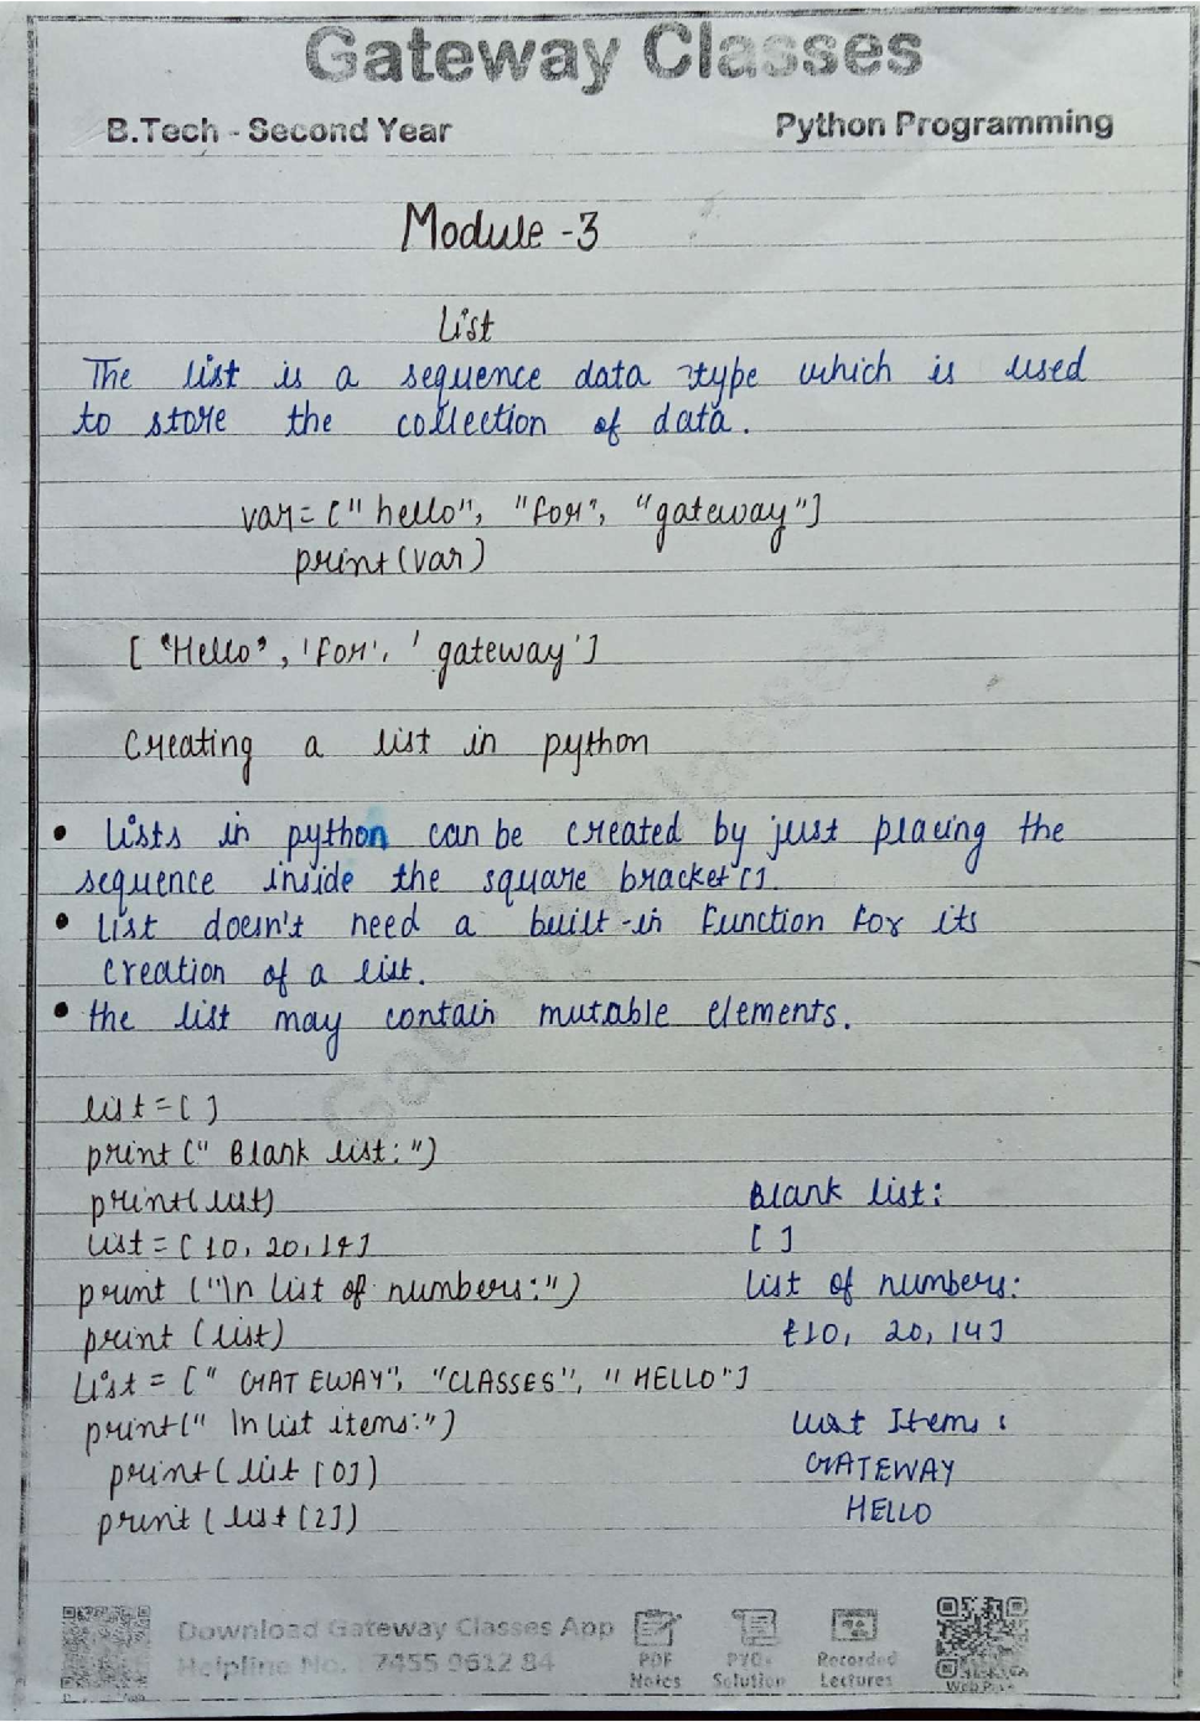 Gateway Classes
B.Tech - Second Year Python Programming
Module -3
List
The list is a sequence data type which is used
to store the collection of data.
var= [" hello", "for", "gateway"]
print(var)
[ "Hello", 'for', ' gateway']
Creating a list in python
• Lists in python can be created by just placing the
sequence inside the square bracket[].
• List doesn't need a built-in function for its
creation of a list.
• the list may contain mutable elements.
list = [ ]
print (" Blank list:")
print(list) Blank list:
list = [ 10, 20, 14] [ ]
print ("\n List of numbers:") List of numbers:
print (list) [10, 20, 14]
List = [" GATEWAY", "CLASSES", " HELLO"]
print(" \n List items:") List Items :
print( list [0]) GATEWAY
print ( list [2]) HELLO
Download Gateway Classes App
Helpline No. : 7455 9612 84
PDF Notes
PYQs Solution
Recorded Lectures
Gateway Classes